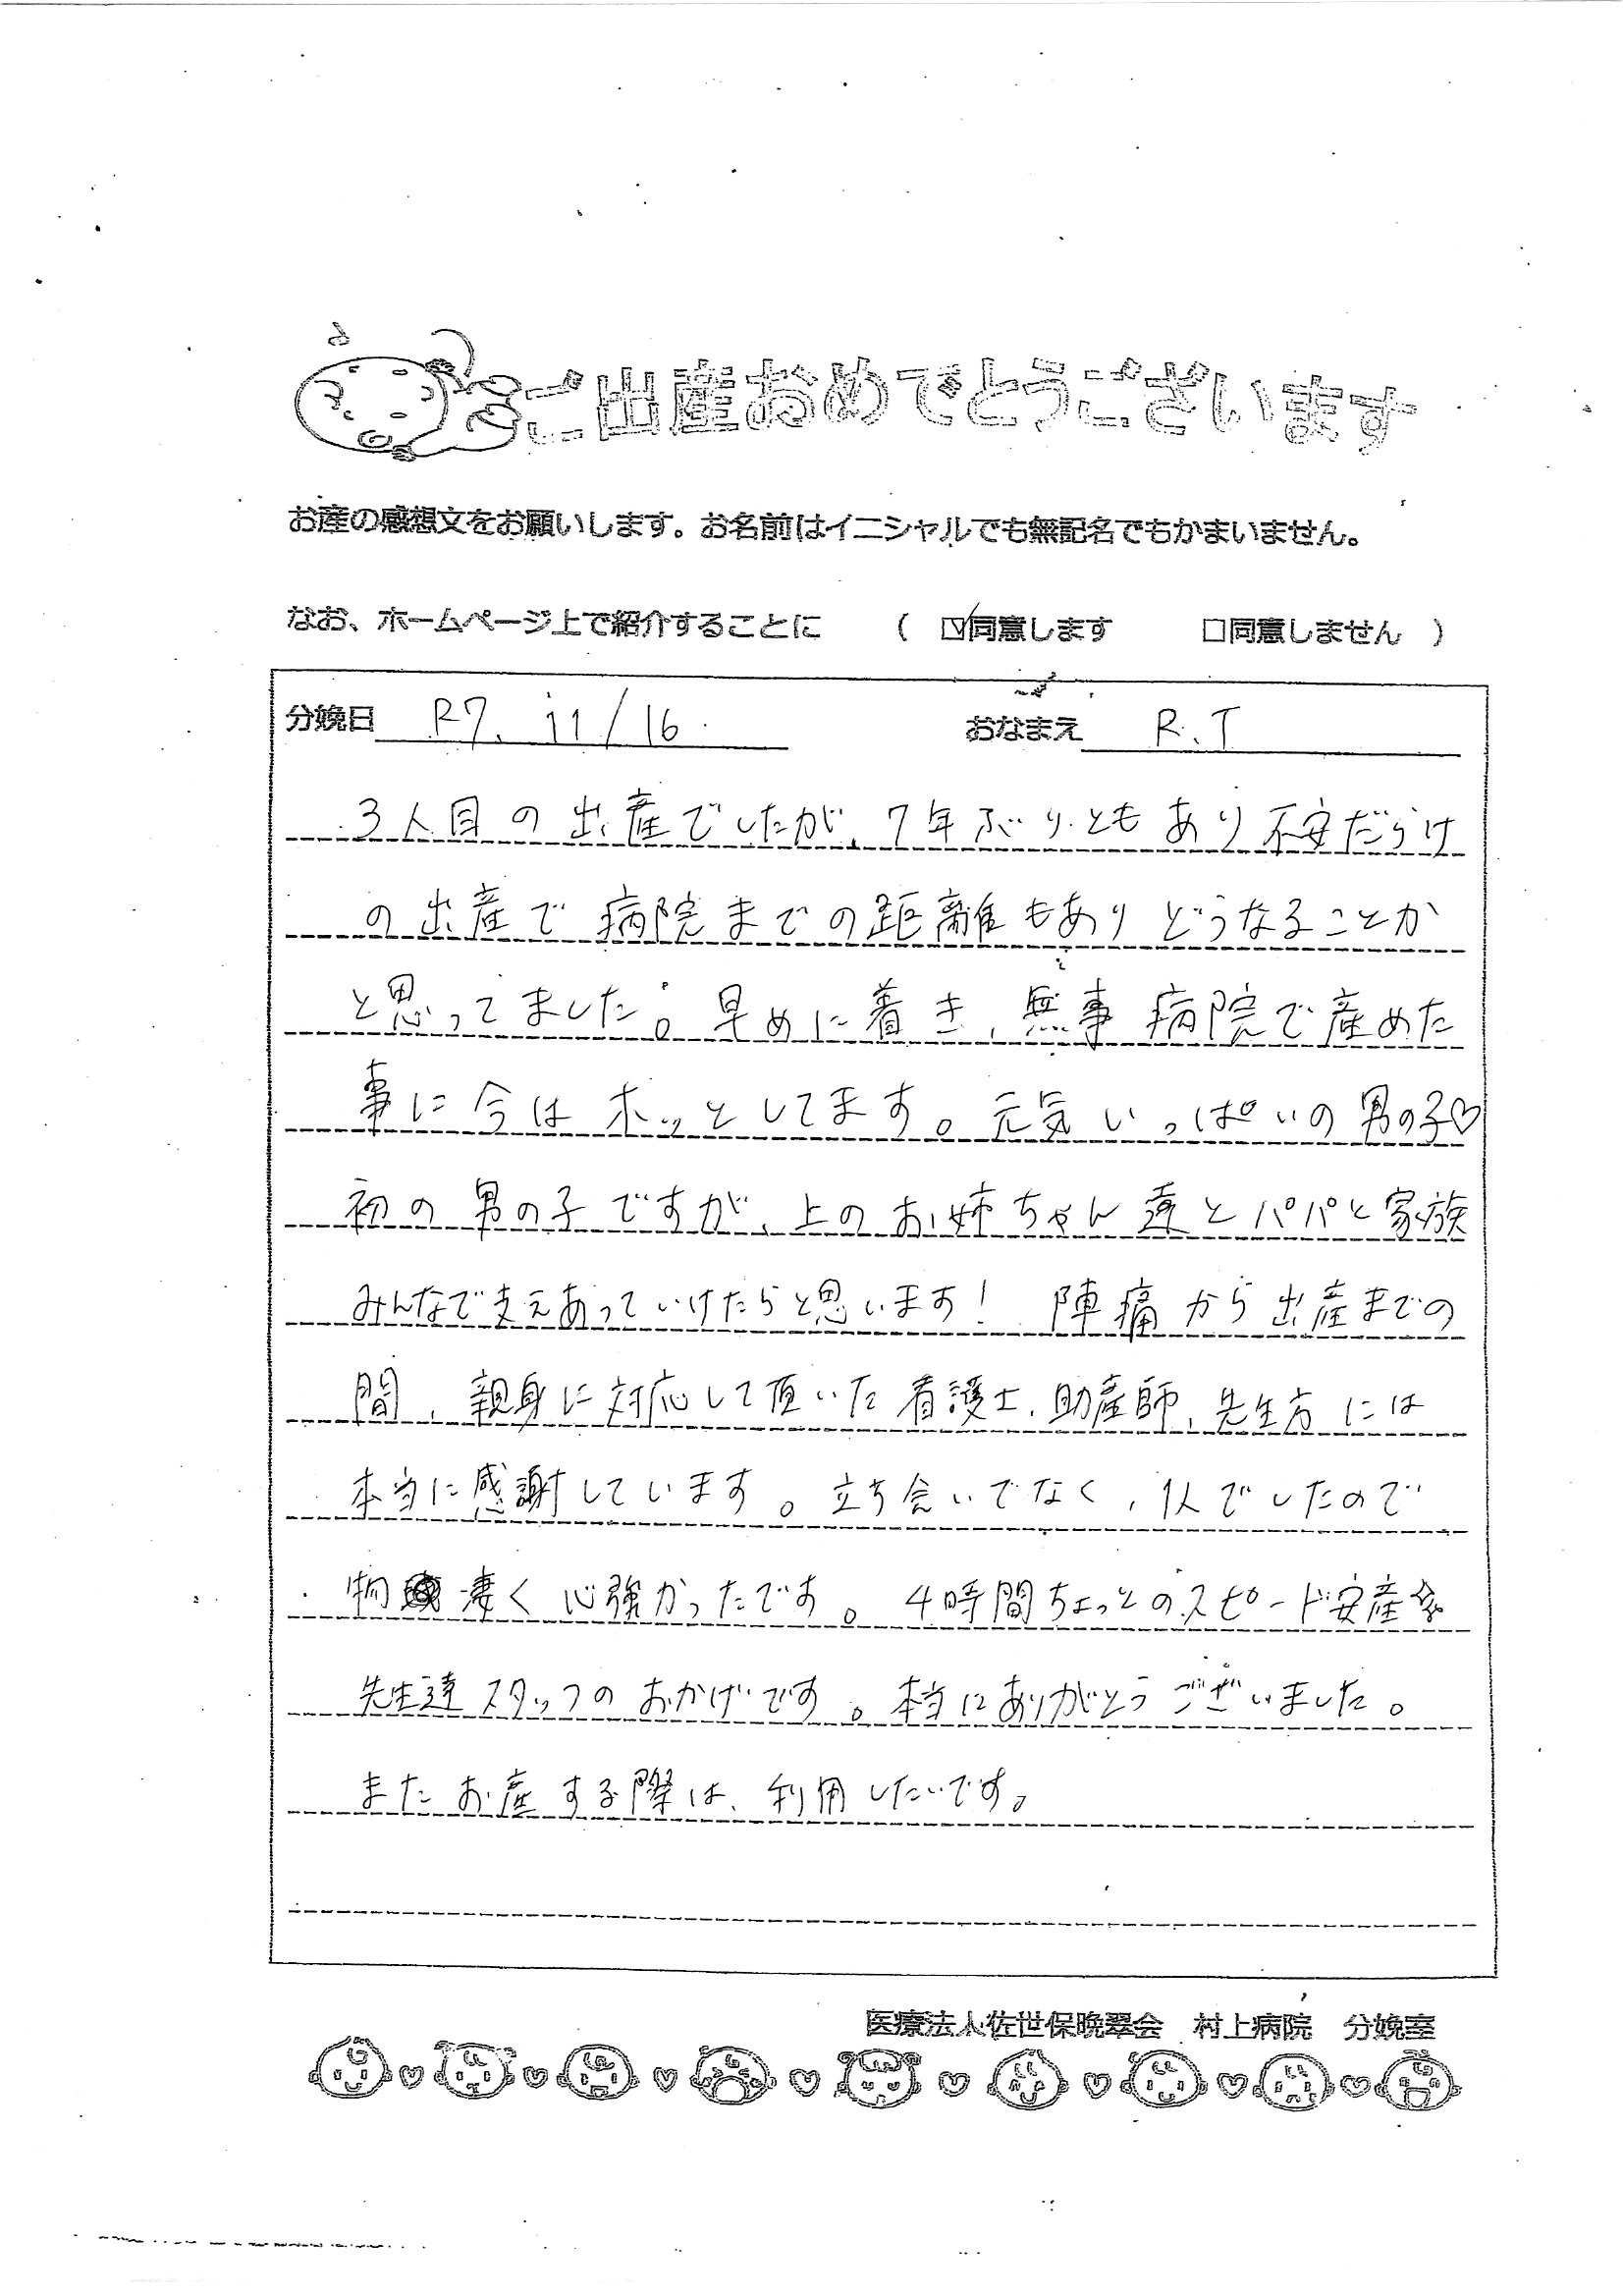 ご出産おめでとうございます
お産の感想文をお願いします。お名前はイニシャルでも無記名でもかまいません。
なお、ホームページ上で紹介することに （ ☑同意します □同意しません ）
分娩日 R7. 11/16 おなまえ R.T
3人目の出産でしたが、7年ぶりともあり不安だらけ
の出産で病院までの距離もありどうなることか
と思ってました。早めに着き、無事病院で産めた
事に今はホッとしてます。元気いっぱいの男の子♡
初の男の子ですが、上のお姉ちゃん達とパパと家族
みんなで支えあっていけたらと思います! 陣痛から出産までの
間、親身に対応して頂いた看護士、助産師、先生方には
本当に感謝しています。立ち会いでなく、1人でしたので
物凄く心強かったです。4時間ちょっとのスピード安産☆
先生達スタッフのおかげです。本当にありがとうございました。
またお産する際は、利用したいです。
医療法人佐世保晩翠会 村上病院 分娩室